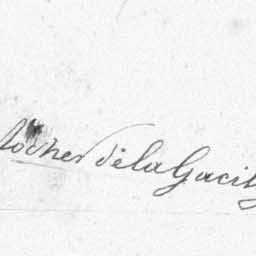 Rocher de la Gacil